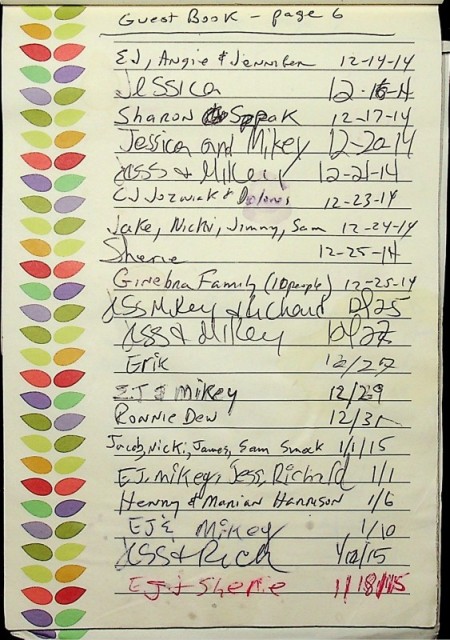 Guest Book - page 6
EJ, Angie & Jennifer 12-14-14
Jessica 12-16-14
Sharon Speak 12-17-14
Jessica and Mikey 12-20-14
Jess & Mikey 12-21-14
CJ Jozwiak & Dolores 12-23-14
Jake, Nicki, Jimmy, Sam 12-24-14
Sherie 12-25-14
Ginebra Family (10 people) 12-25-14
Jess Mikey & Richard 12/25
Jess & Mikey 12/27
Erik 12/27
EJ & Mikey 12/29
Ronnie Dew 12/31
Jacob, Nicki, James, Sam Smock 1/1/15
EJ, Mikey, Jess, Richard 1/1
Henny & Marian Harrison 1/6
EJ & Mikey 1/10
Jess & Rich 1/12/15
EJ + Sherie 1/18/15